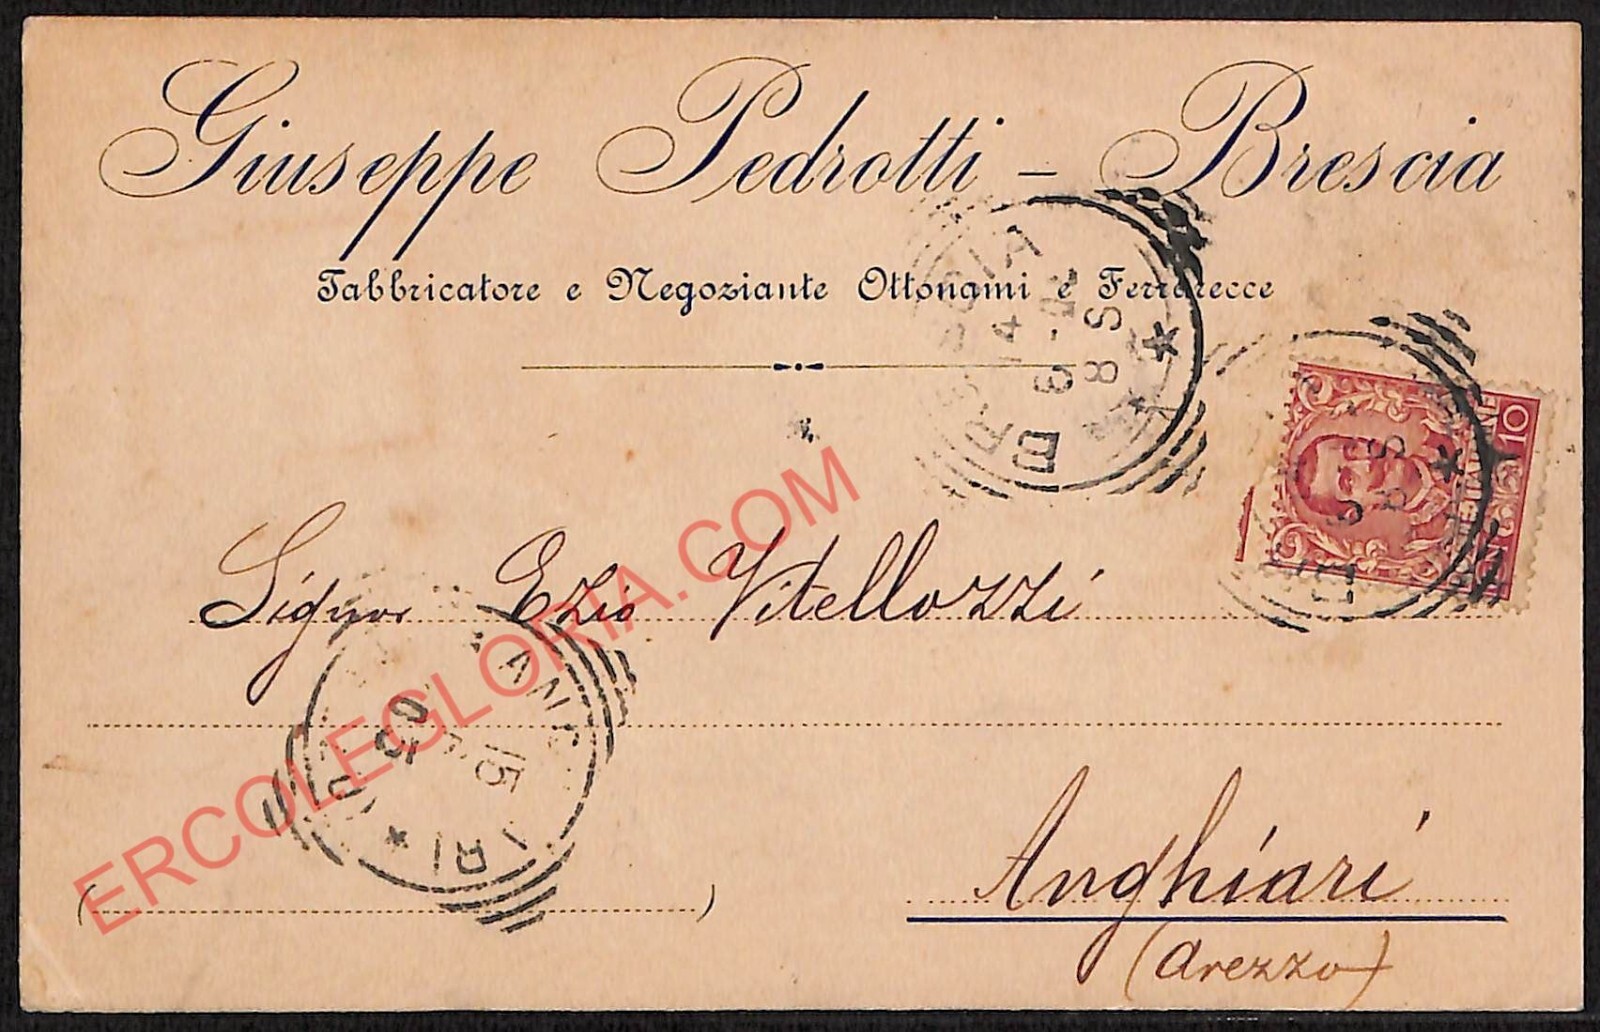 Giuseppe Pedrotti – Brescia
Fabbricatore e Negoziante Ottonami e Ferrarecce
BRESCIA
14
8 S
10
Signor Ezio Vitellozzi
15
ERCOLEGLORIA.COM
Anghiari
(Arezzo)